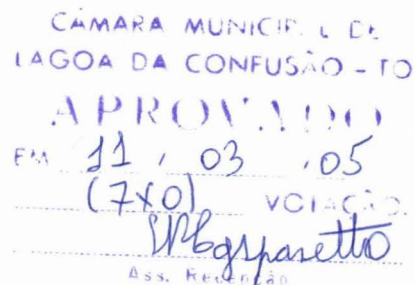 CÂMARA MUNICIPAL DE
LAGOA DA CONFUSÃO - TO
APROVADO
EM 11 / 03 / 05
(7X0) VOTAÇÃO
Ass.